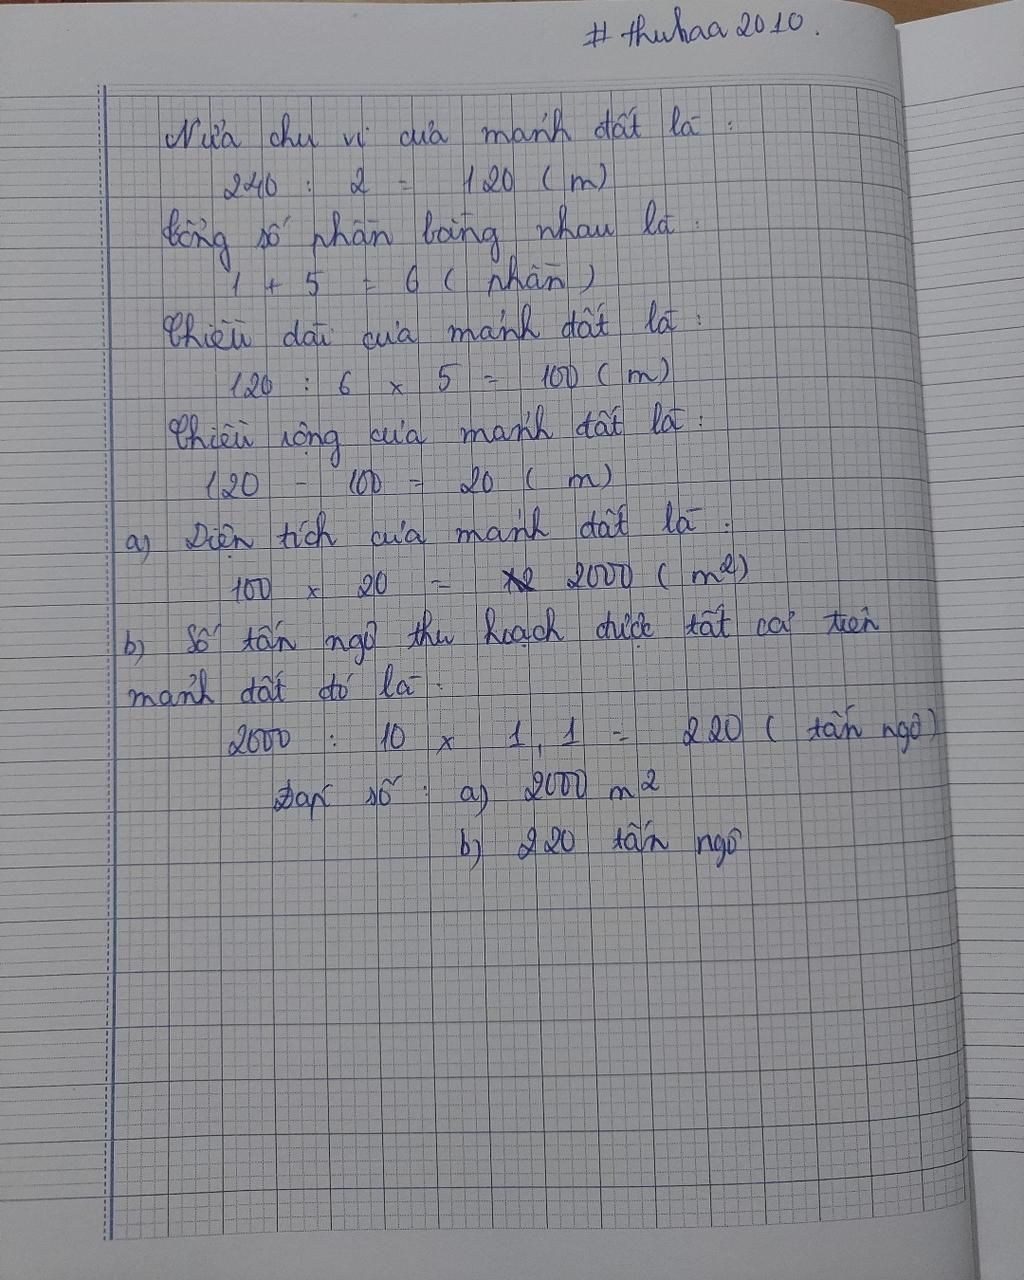 # thuhaa 2010.
Nửa chu vi của mảnh đất là :
240 : 2 = 120 ( m )
Tổng số phần bằng nhau là :
1 + 5 = 6 ( phần )
Chiều dài của mảnh đất là :
120 : 6 x 5 = 100 ( m )
Chiều rộng của mảnh đất là :
120 - 100 = 20 ( m )
a) Diện tích của mảnh đất là :
100 x 20 = 2000 ( m2 )
b) Số tấn ngô thu hoạch được tất cả trên
mảnh đất đó là :
2000 : 10 x 1,1 = 220 ( tấn ngô )
Đáp số : a) 2000 m2
b) 220 tấn ngô